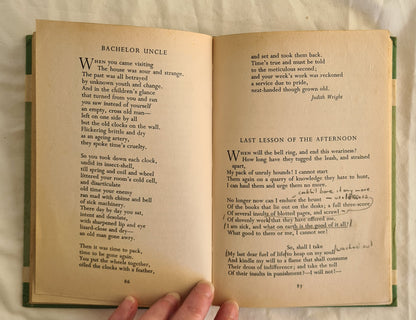 BACHELOR UNCLE
WHEN you came visiting
The house was sour and strange.
The past was all betrayed
by unknown youth and change.
And in the children's glance
that turned from you and ran
you saw instead of yourself
an empty, cross old man—
left on one side by all
but the old clocks on the wall.
Flickering brittle and dry
as an ageing artery,
they spoke time's cruelty.
So you took down each clock,
undid its insect-shell,
till spring and coil and wheel
littered your room's cold cell,
and disarticulate
old time your enemy
ran mad with chime and bell
of sick machinery.
There day by day you sat,
intent and desolate,
with sharpened lip and eye
lizard-close and dry—
an old man gone awry.
Then it was time to pack,
time to be gone again.
You put the wheels together,
oiled the clocks with a feather,
86
and set and took them back.
Time's true and must be told
to the meticulous second;
and your week's work was reckoned
a service due to pride,
neat-handed though grown old.
Judith Wright
LAST LESSON OF THE AFTERNOON
WHEN will the bell ring, and end this weariness?
How long have they tugged the leash, and strained
apart,
My pack of unruly hounds! I cannot start
Them again on a quarry of knowledge they hate to hunt,
I can haul them and urge them no more.
any more
No longer now can I endure the brunt
Of the books that lie out on the desks; a full three-score
Of several insults of blotted pages, and scrawl
Of slovenly work that they have offered me.
I am sick, and what on earth is the good of it all?
What good to them or me, I cannot see!
So, shall I take
My last dear fuel of life to heap on my soul
And kindle my will to a flame that shall consume
Their dross of indifference; and take the toll
Of their insults in punishment?—I will not!—
87